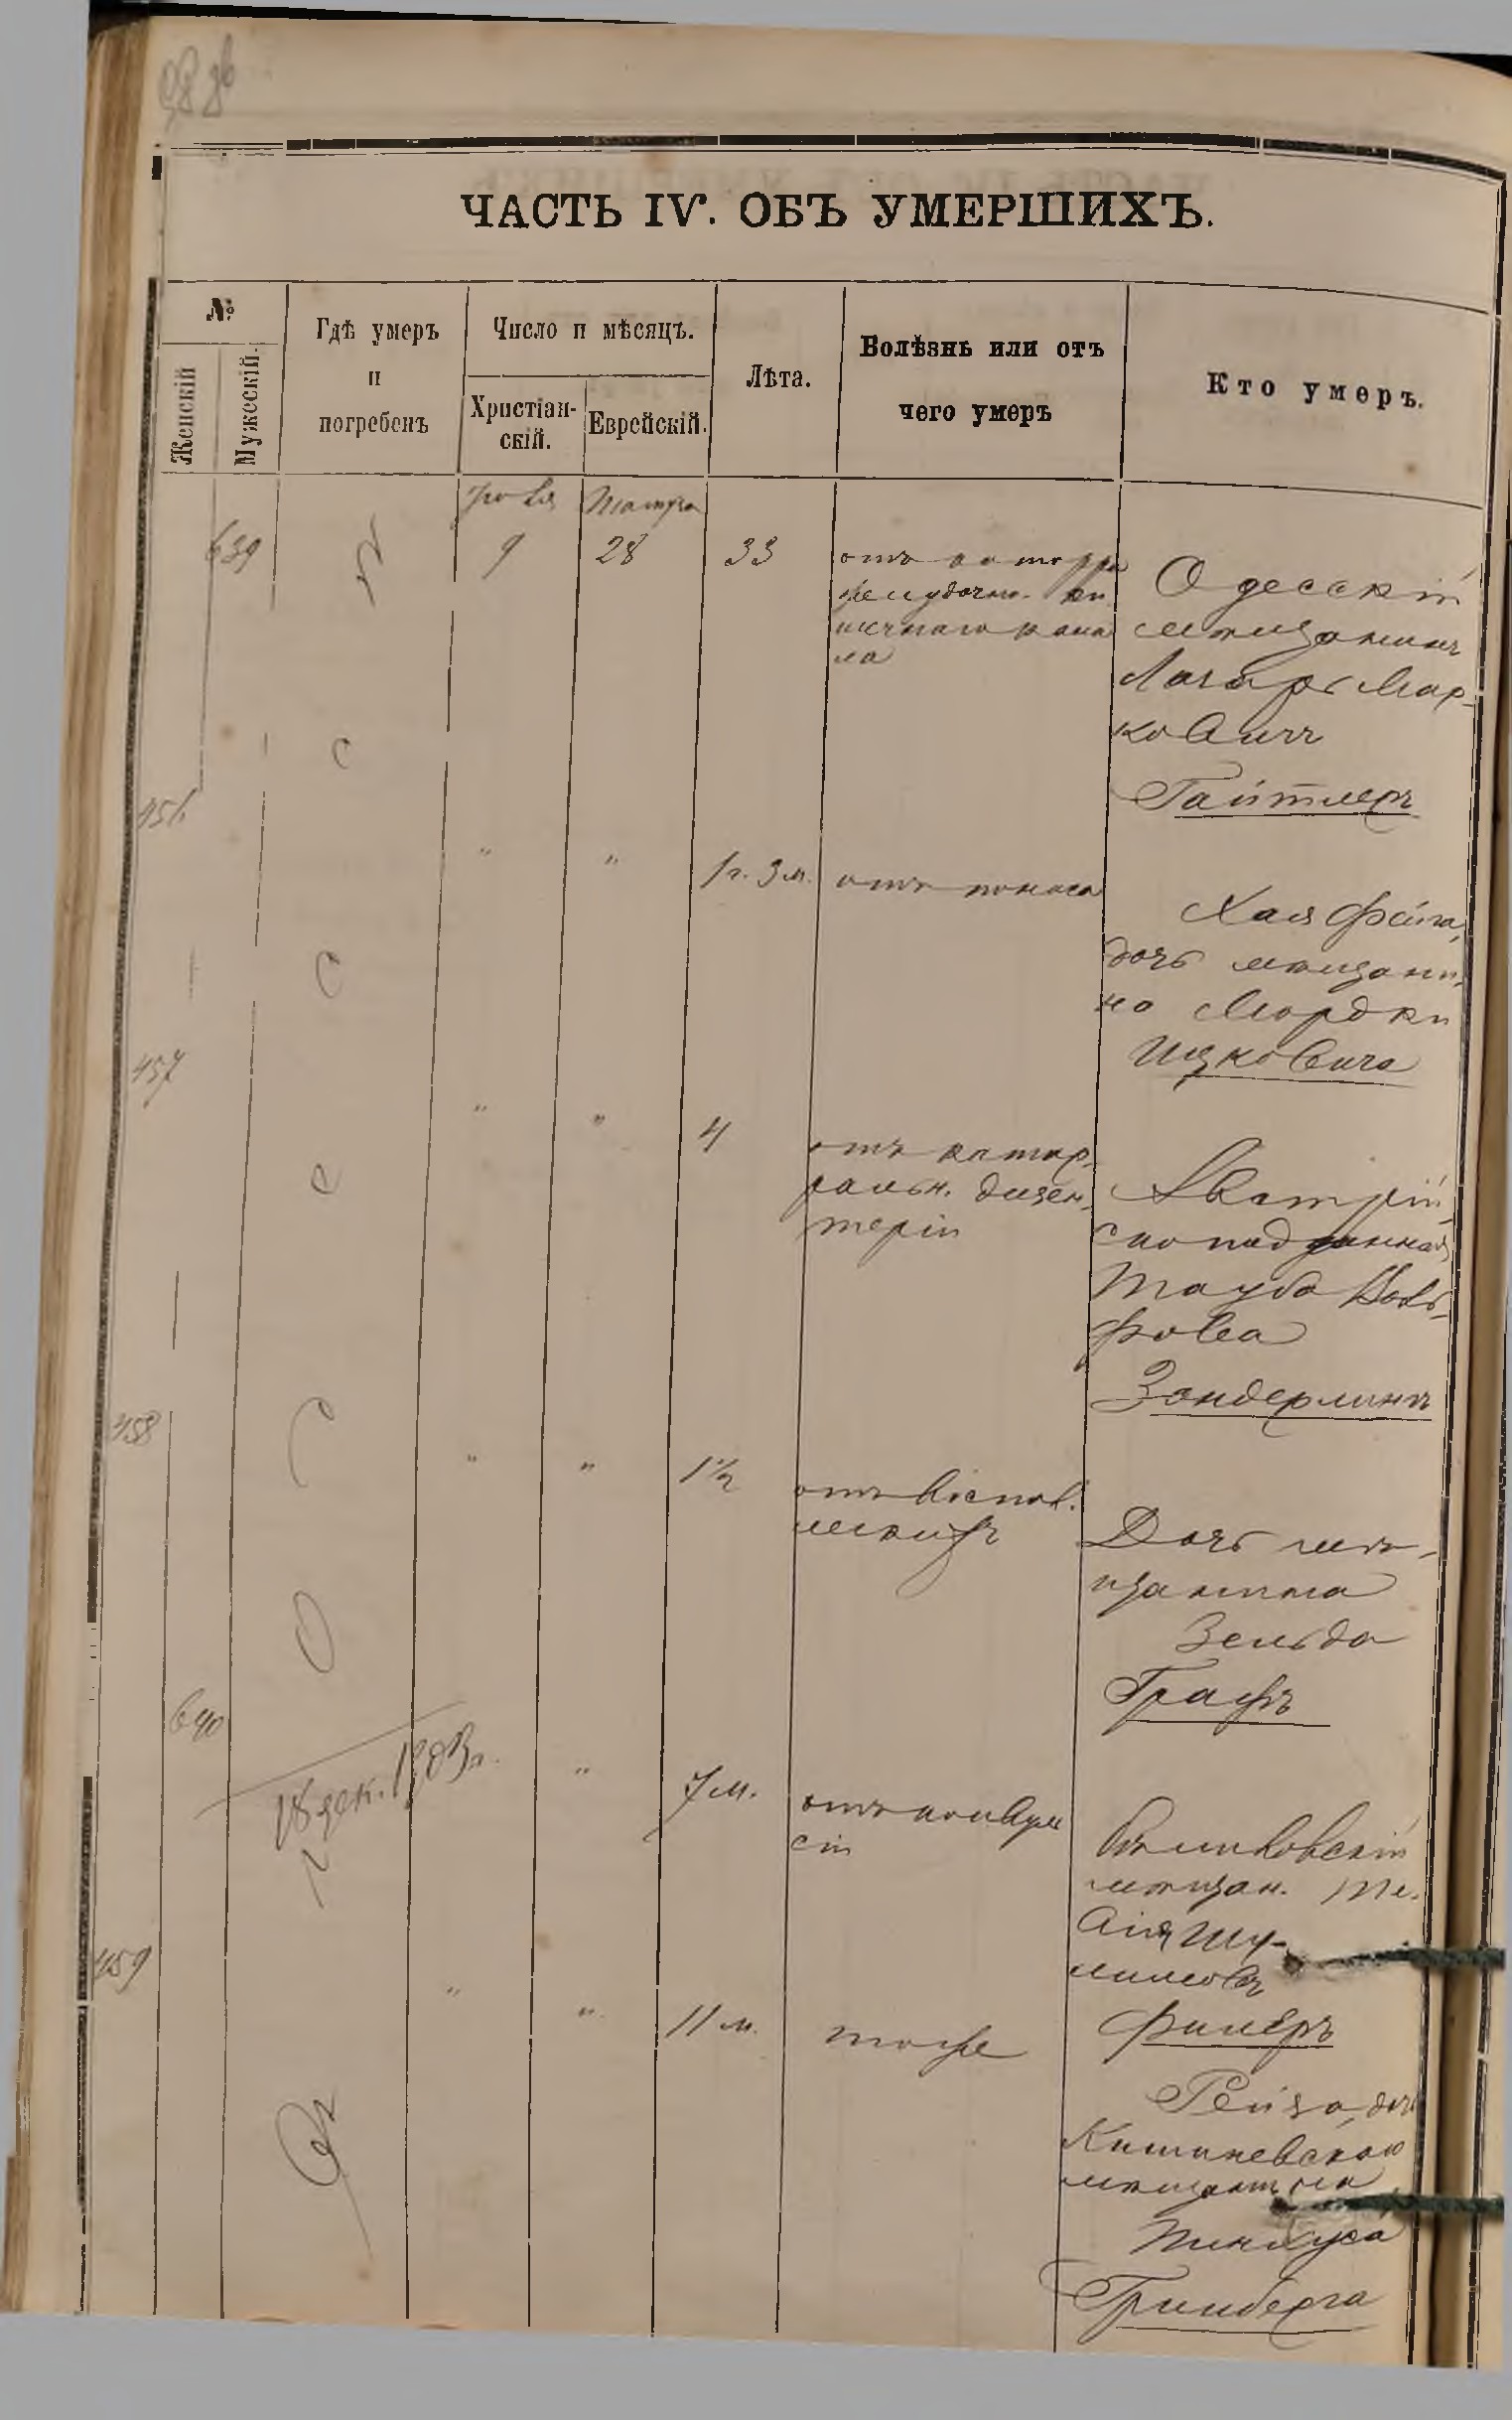 ЧАСТЬ IV. ОБЪ УМЕРШИХЪ.
№
Женскій
Мужескій.
Гдѣ умеръ
и
погребенъ
Число и мѣсяцъ.
Христіан-
скій.
Еврейскій.
Лѣта.
Болѣзнь или отъ
чего умеръ
Кто умеръ.
639
9
28
33
отъ катарра
желудочно-ки
шечнаго кана
ла
Одесскій
мѣщанинъ
Лазарь Мар-
ковичъ
Гайтлеръ
456
"
"
1 г. 3 м.
отъ поноса
Хая Фейга,
дочь мѣщани-
на Мордки
Ицковича
457
"
"
4
отъ катар-
ральн. дизен-
теріи
Австрій-
скоподданная
Тауба Воль-
фова
Зондерлингъ
458
"
"
1½
отъ воспал.
легкихъ
Дочь мѣ-
щанина
Зельда
Графъ
640
18 дек. 1903 г.
"
7 м.
отъ конвуль
сій
мѣщан.
Шу-
лимовъ
459
"
"
11 м.
тоже
Рейза, дочь
Кишиневскаго
мѣщанина
Пинхуса
Гринберга